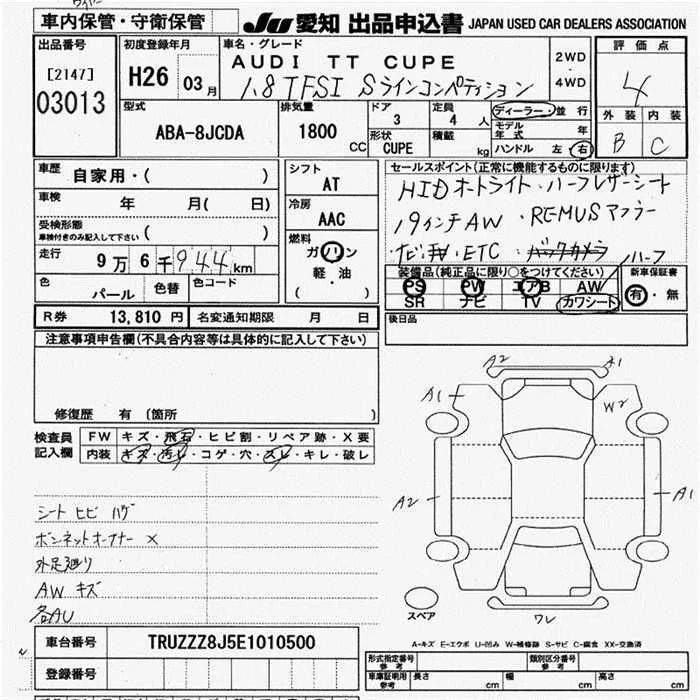 車内保管・守衛保管
JU 愛知 出品申込書 JAPAN USED CAR DEALERS ASSOCIATION
出品番号
[2147]
03013
初度登録年月
H26 03月
車名・グレード
AUDI TT CUPE
1.8TFSI Sラインコンペティション
2WD
・
4WD
評価点
4
外装 内装
B C
型式
ABA-8JCDA
排気量
1800 CC
ドア
3
形状
CUPE
定員
4 人
積載
kg
ディーラー・並行
モデル年式 年
ハンドル 左・右
車歴
自家用・( )
車検 年 月( 日)
受検形態
車検付きのみ記入して下さい ( )
走行
9万6千944km
色
パール
色替
色コード
シフト
AT
冷房
AAC
燃料
ガソリン
軽・油
( )
セールスポイント(正常に機能するものに限ります)
HID オートライト・ハーフレザーシート
19インチAW ・REMUSマフラー
ETC ・バックカメラ
ハーフ
装備品(純正品に限り○をつけてください)
PS PW エアB AW
SR ナビ TV カワシート
新車保証書
有・無
R券 13,810 円
名変通知期限 月 日
後日品
注意事項申告欄(不具合内容等は具体的に記入して下さい)
修復歴 有 〔箇所 〕
検査員記入欄
FW キズ・飛石・ヒビ割・リペア跡・X要
内装 キズ・汚レ・コゲ・穴・スレ・キレ・破レ
シート ヒビ ハゲ
ボンネットオープナー ×
外足廻り
AW キズ
各AU
A2 A1
A1
W2
A2
A1
スペア
ワレ
A-キズ E-エクボ U-凹み W-補修跡 S-サビ C-腐食 XX-交換済
車台番号
TRUZZZ8J5E1010500
登録番号
形式指定番号
参考
類別区分番号
参考
車庫証明用
参考
長さ cm
幅 cm
高さ cm